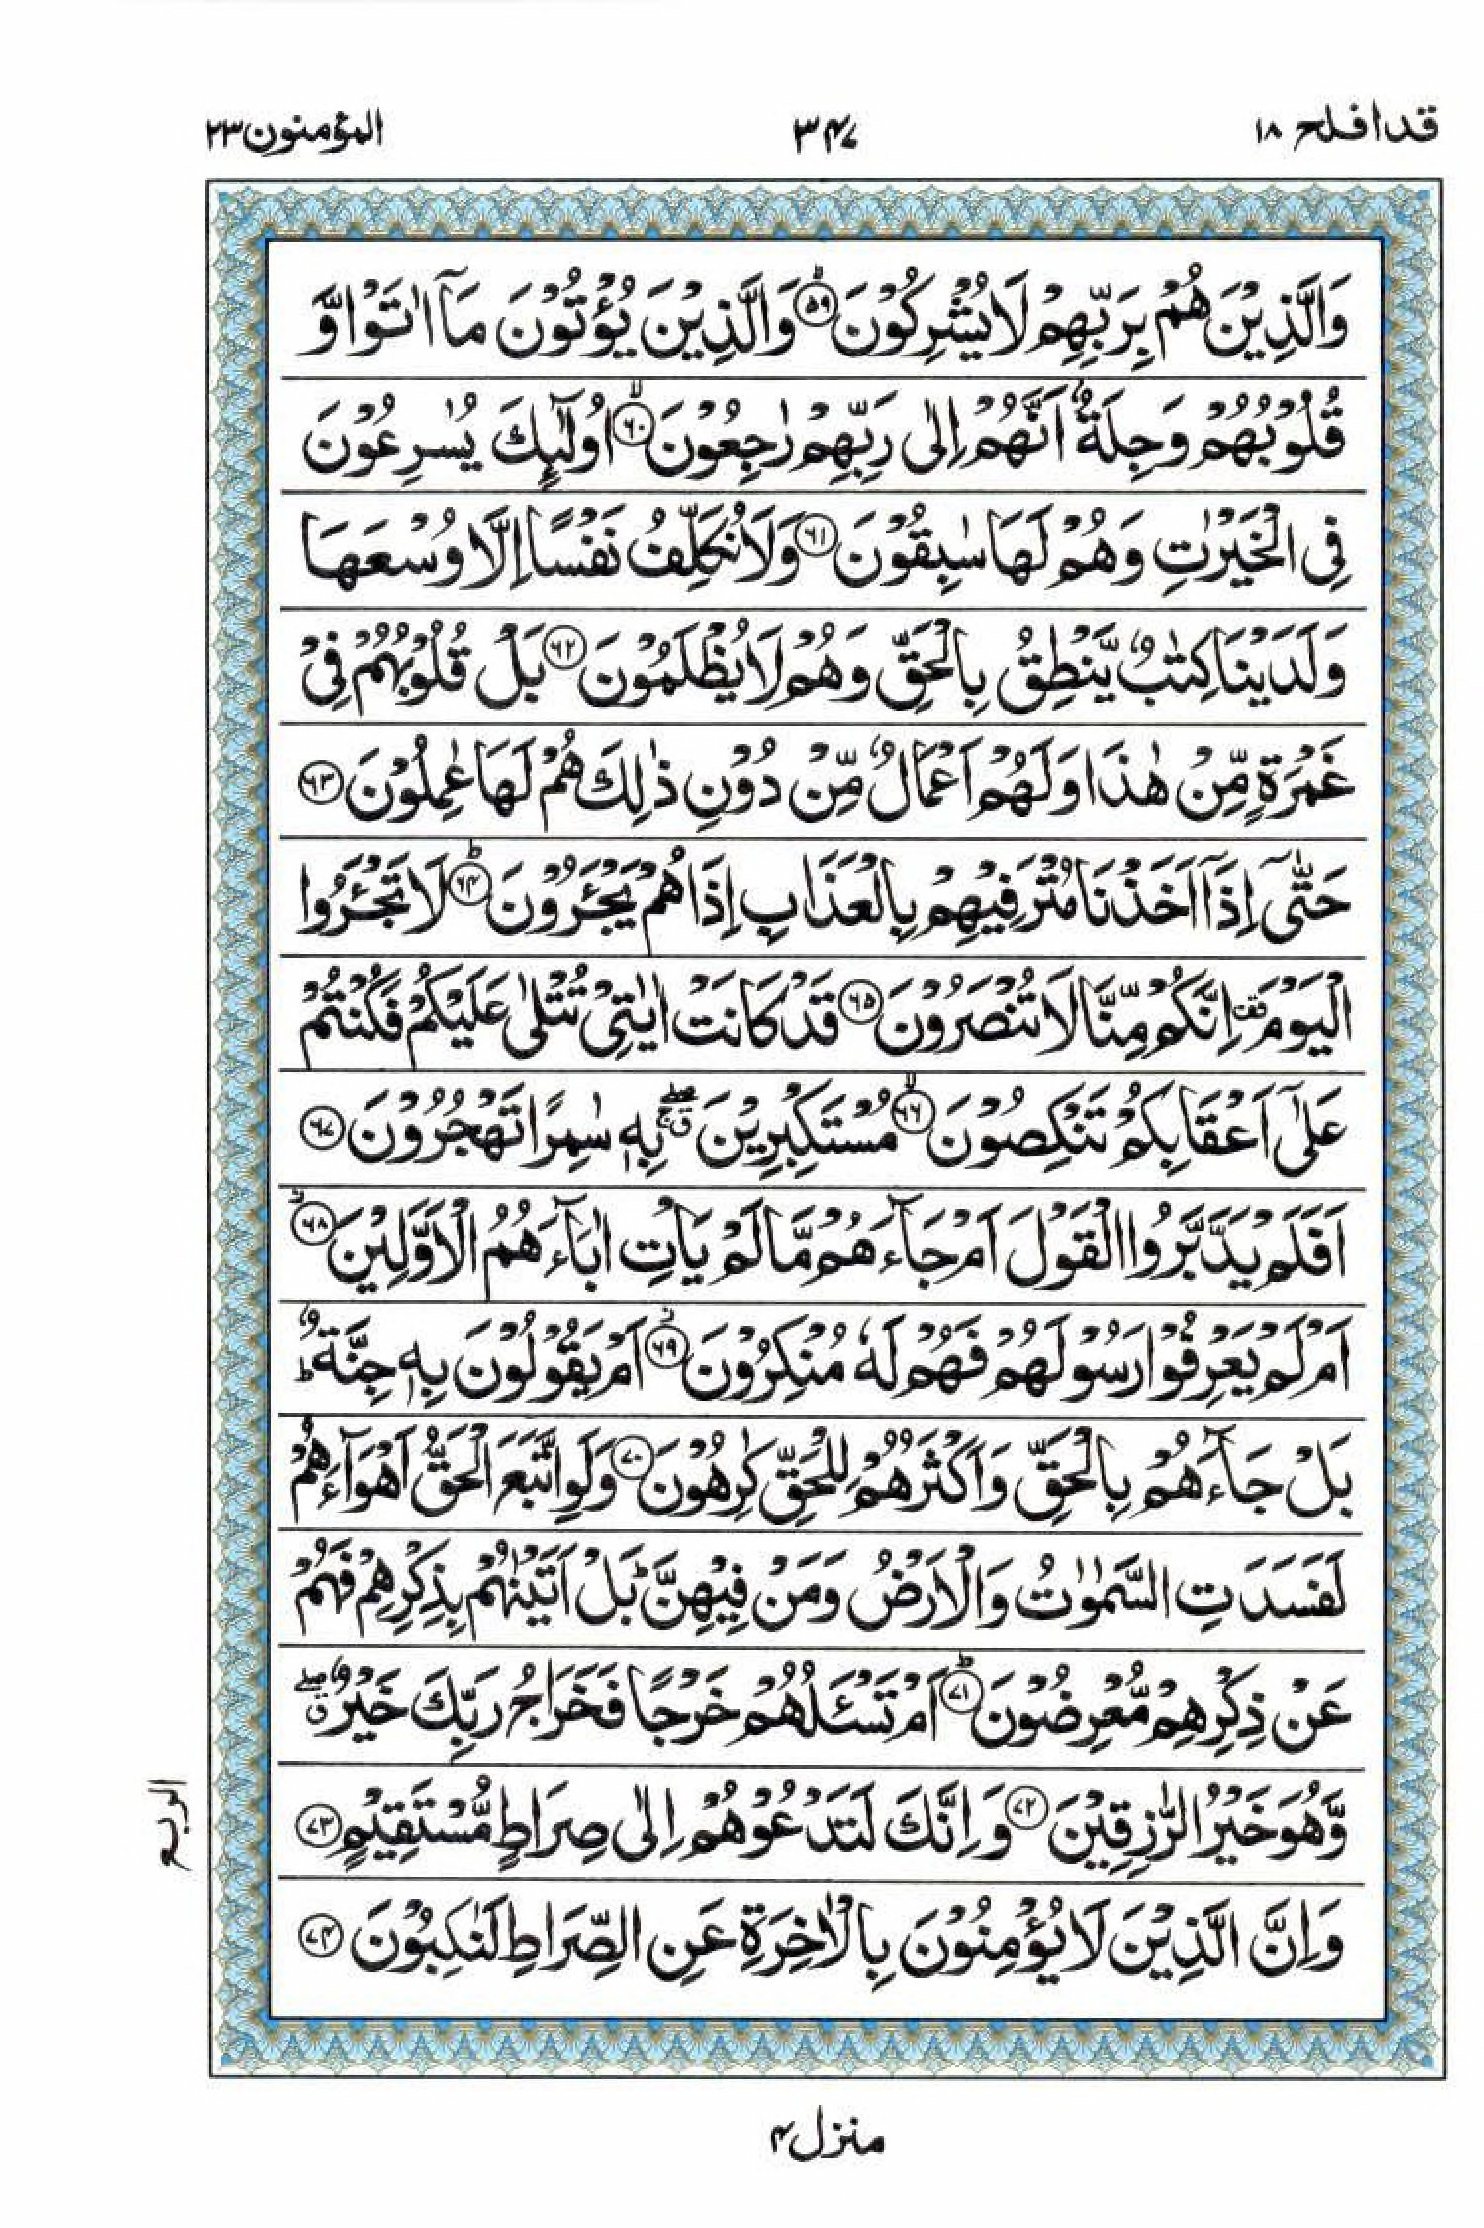 قد افلح ١٨
٣٤٧
المؤمنون ٢٣
وَالَّذِيْنَ هُمْ بِرَبِّهِمْ لَا يُشْرِكُوْنَ ۙ﴿۵۹﴾ وَالَّذِيْنَ يُؤْتُوْنَ مَاۤ اٰتَوْا وَّ
قُلُوْبُهُمْ وَجِلَةٌ اَنَّهُمْ اِلٰى رَبِّهِمْ رٰجِعُوْنَ ۙ﴿۶۰﴾ اُولٰٓىِٕكَ يُسٰرِعُوْنَ
فِى الْخَيْرٰتِ وَهُمْ لَهَا سٰبِقُوْنَ ﴿۶۱﴾ وَلَا نُكَلِّفُ نَفْسًا اِلَّا وُسْعَهَا
وَلَدَيْنَا كِتٰبٌ يَّنْطِقُ بِالْحَقِّ وَهُمْ لَا يُظْلَمُوْنَ ﴿۶۲﴾ بَلْ قُلُوْبُهُمْ فِىْ
غَمْرَةٍ مِّنْ هٰذَا وَلَهُمْ اَعْمَالٌ مِّنْ دُوْنِ ذٰلِكَ هُمْ لَهَا عٰمِلُوْنَ ﴿۶۳﴾
حَتّٰىۤ اِذَاۤ اَخَذْنَا مُتْرَفِيْهِمْ بِالْعَذَابِ اِذَا هُمْ يَجْـَٔرُوْنَ ؕ﴿۶۴﴾ لَا تَجْـَٔرُوا
الْيَوْمَ ۫ اِنَّكُمْ مِّنَّا لَا تُنْصَرُوْنَ ﴿۶۵﴾ قَدْ كَانَتْ اٰيٰتِىْ تُتْلٰى عَلَيْكُمْ فَكُنْتُمْ
عَلٰۤى اَعْقَابِكُمْ تَنْكِصُوْنَ ۙ﴿۶۶﴾ مُسْتَكْبِرِيْنَ ۖۗ بِهٖ سٰمِرًا تَهْجُرُوْنَ ﴿۶۷﴾
اَفَلَمْ يَدَّبَّرُوا الْقَوْلَ اَمْ جَآءَهُمْ مَّا لَمْ يَاْتِ اٰبَآءَهُمُ الْاَوَّلِيْنَ ؗ﴿۶۸﴾
اَمْ لَمْ يَعْرِفُوْا رَسُوْلَهُمْ فَهُمْ لَهٗ مُنْكِرُوْنَ ؗ﴿۶۹﴾ اَمْ يَقُوْلُوْنَ بِهٖ جِنَّةٌ ؕ
بَلْ جَآءَهُمْ بِالْحَقِّ وَاَكْثَرُهُمْ لِلْحَقِّ كٰرِهُوْنَ ﴿۷۰﴾ وَلَوِ اتَّبَعَ الْحَقُّ اَهْوَآءَهُمْ
لَفَسَدَتِ السَّمٰوٰتُ وَالْاَرْضُ وَمَنْ فِيْهِنَّ ؕ بَلْ اَتَيْنٰهُمْ بِذِكْرِهِمْ فَهُمْ
عَنْ ذِكْرِهِمْ مُّعْرِضُوْنَ ؕ﴿۷۱﴾ اَمْ تَسْـَٔلُهُمْ خَرْجًا فَخَرَاجُ رَبِّكَ خَيْرٌ ۖۗ
وَّهُوَ خَيْرُ الرّٰزِقِيْنَ ﴿۷۲﴾ وَاِنَّكَ لَتَدْعُوْهُمْ اِلٰى صِرَاطٍ مُّسْتَقِيْمٍ ﴿۷۳﴾
وَاِنَّ الَّذِيْنَ لَا يُؤْمِنُوْنَ بِالْاٰخِرَةِ عَنِ الصِّرَاطِ لَنٰكِبُوْنَ ﴿۷۴﴾
الربع
منزل ۴